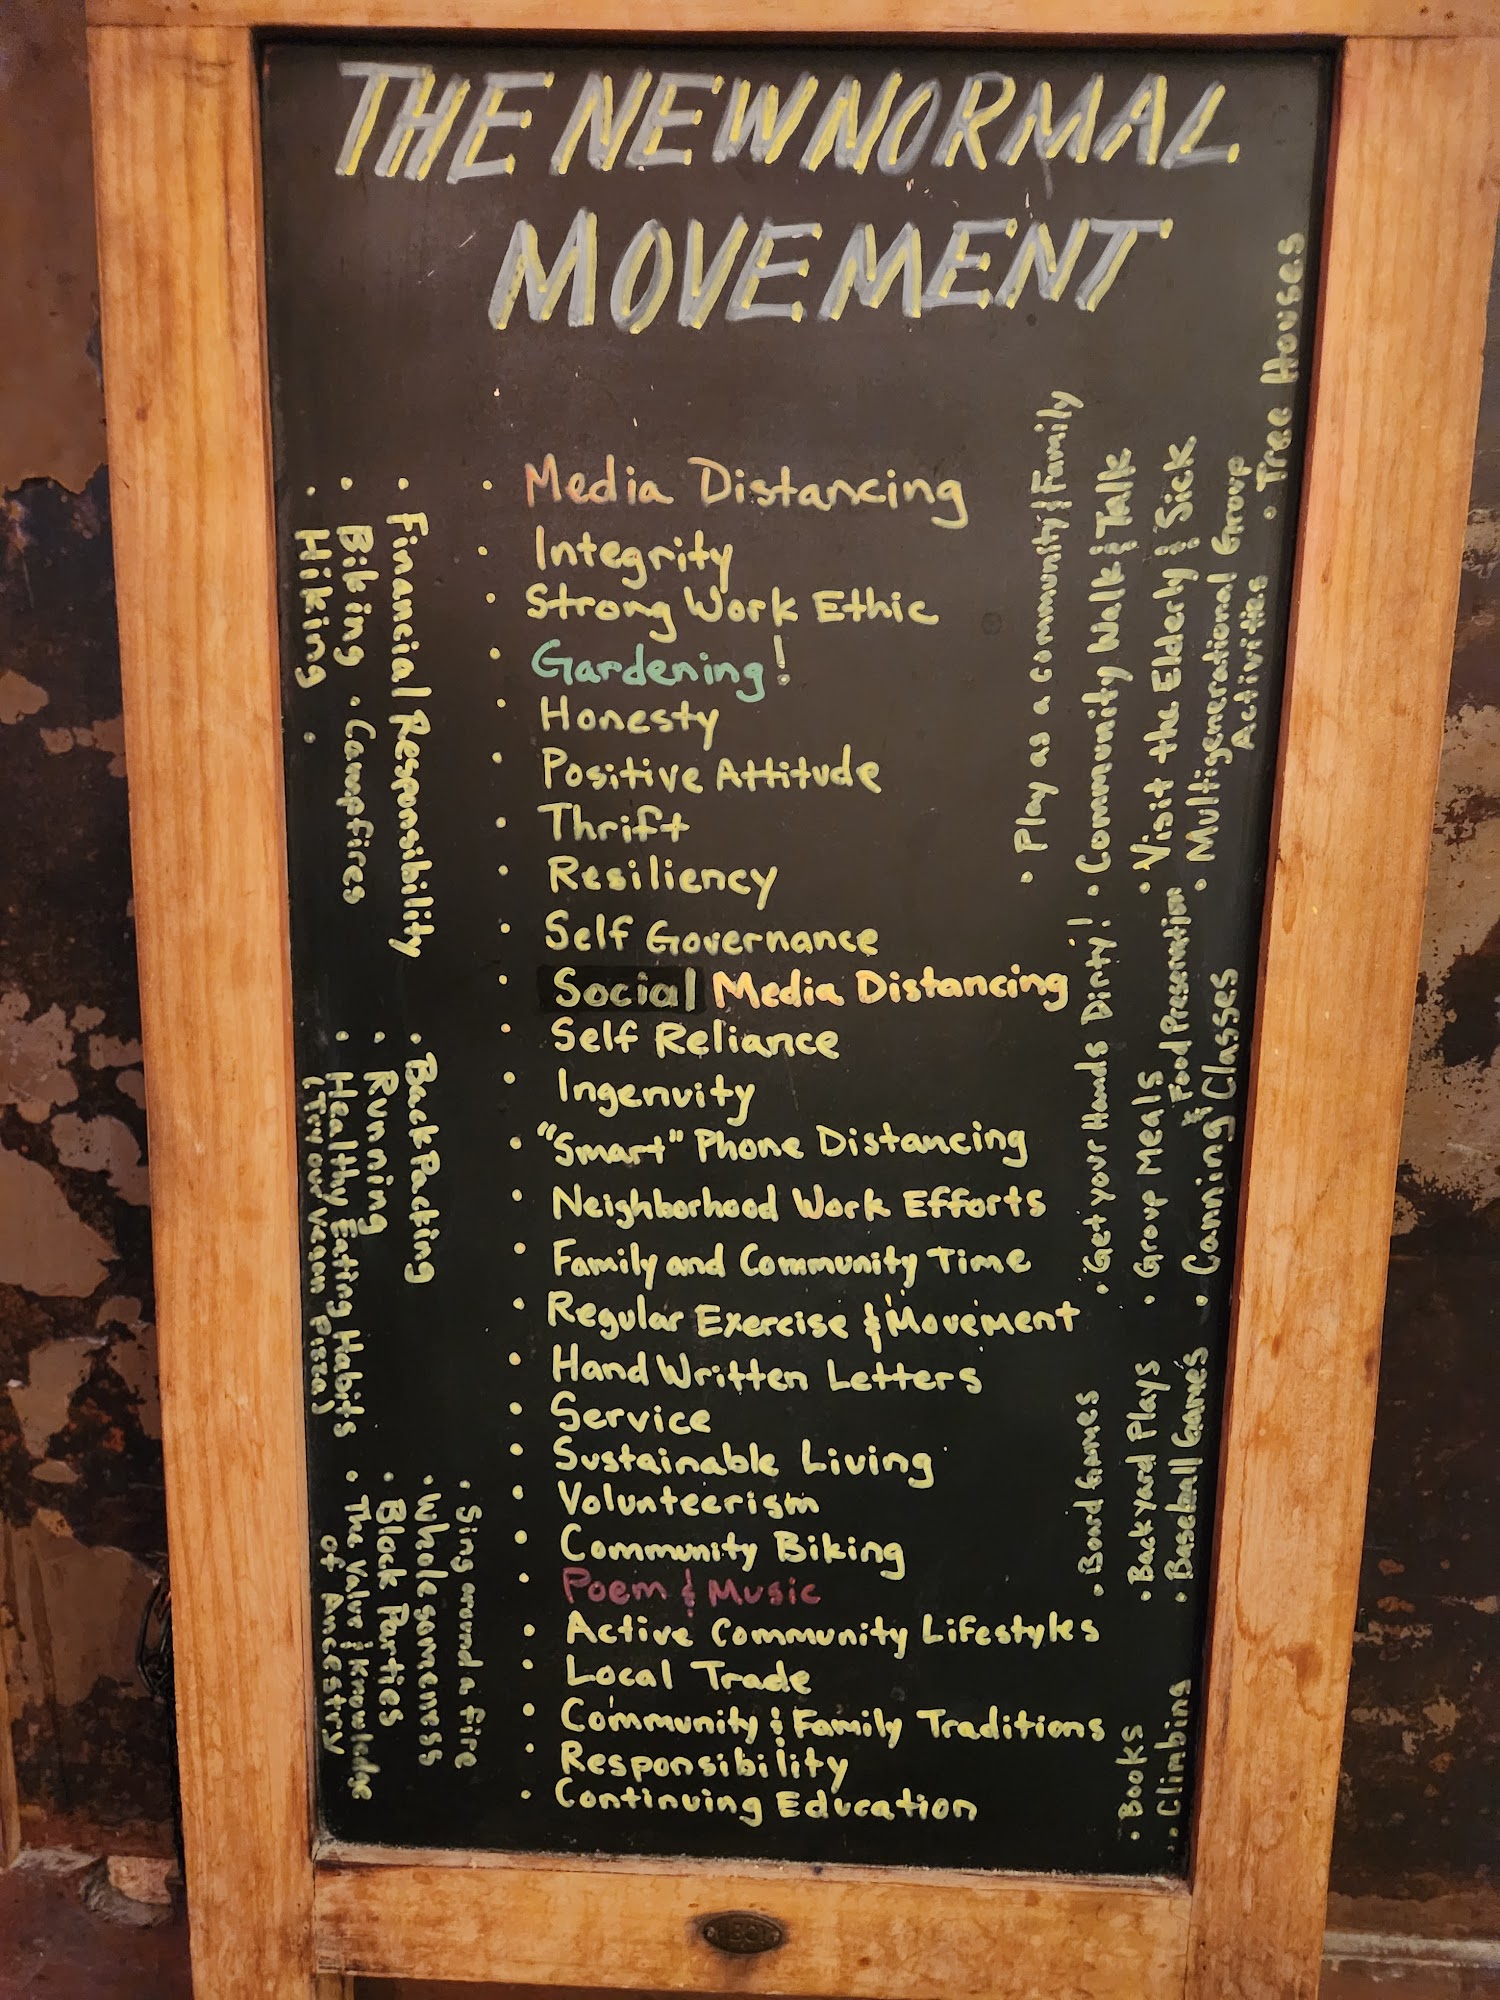 THE NEW NORMAL
MOVEMENT
• Media Distancing
• Integrity
• Strong Work Ethic
• Gardening!
• Honesty
• Positive Attitude
• Thrift
• Resiliency
• Self Governance
• Social Media Distancing
• Self Reliance
• Ingenuity
• "Smart" Phone Distancing
• Neighborhood Work Efforts
• Family and Community Time
• Regular Exercise & Movement
• Hand Written Letters
• Service
• Sustainable Living
• Volunteerism
• Community Biking
• Poem & Music
• Active Community Lifestyles
• Local Trade
• Community & Family Traditions
• Responsibility
• Continuing Education
• Financial Responsibility
• Biking • Campfires
• Hiking •
• Back Packing
• Running
• Healthy Eating Habits
(Try our Vegan Pizza)
• Sing around a fire
• Wholesomeness
• Block Parties
• The Value & Knowledge
of Ancestry
• Play as a community & Family
• Community Walk & Talk
• Visit the Elderly & Sick
• Multigenerational Group
Activities
• Tree Houses
• Get your Hands Dirty!
• Group Meals
• Canning & Food Preservation
Classes
• Board Games
• Backyard Plays
• Baseball Games
• Books
• Climbing